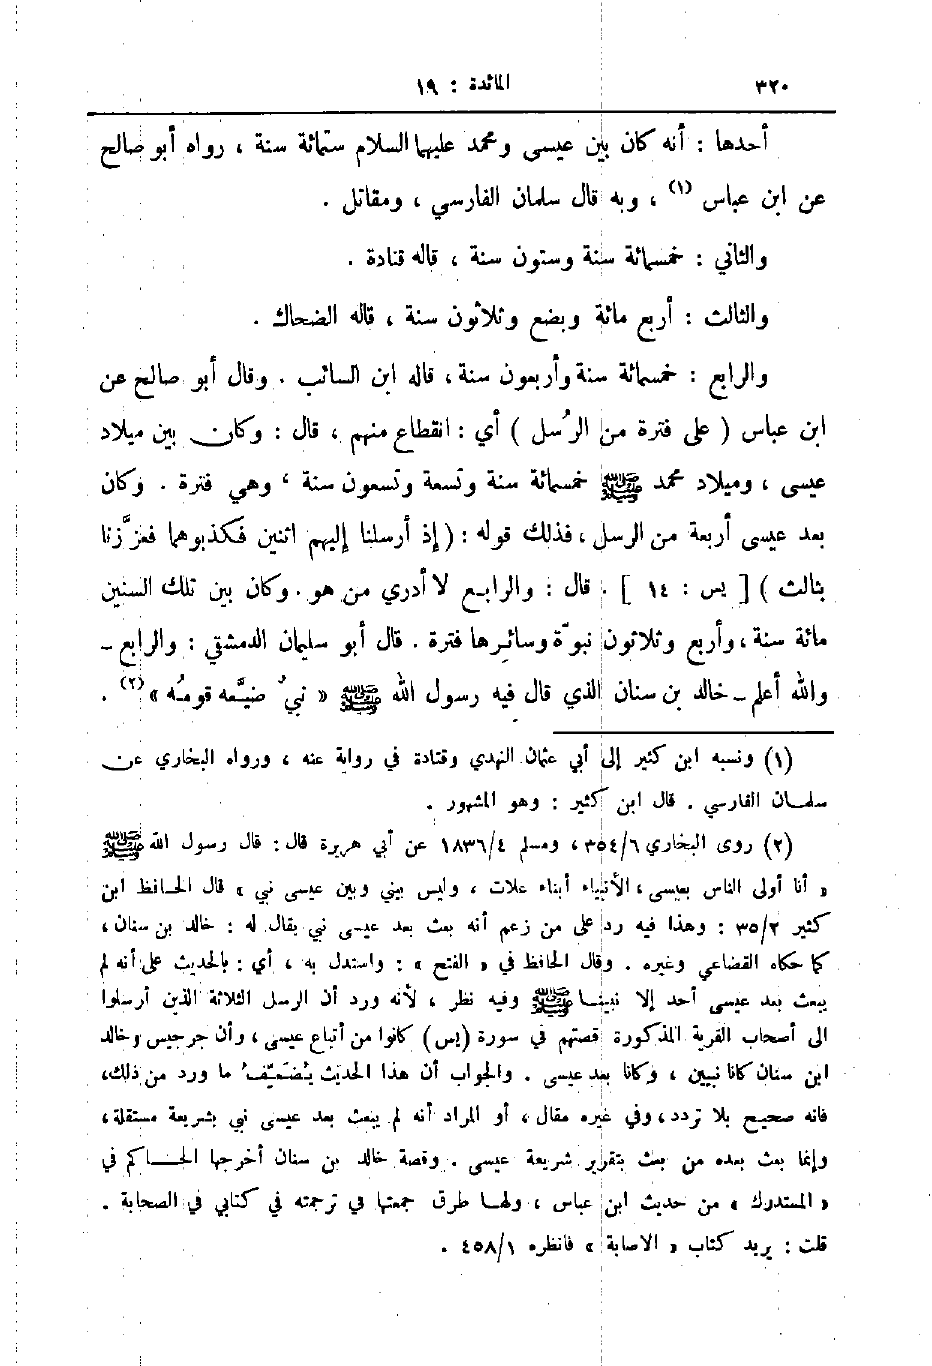 ٣٢٠ المائدة : ١٩
أحدها : أنه كان بين عيسى ومحمد عليهما السلام ستمائة سنة ، رواه أبو صالح
عن ابن عباس (١) ، وبه قال سلمان الفارسي ، ومقاتل .
والثاني : خمسمائة سنة وستون سنة ، قاله قتادة .
والثالث : أربع مائة وبضع وثلاثون سنة ، قاله الضحاك .
والرابع : خمسمائة سنة وأربعون سنة ، قاله ابن السائب . وقال أبو صالح عن
ابن عباس ( على فترة من الرُسل ) أي : انقطاع منهم ، قال : وكان بين ميلاد
عيسى ، وميلاد محمد ﷺ خمسمائة سنة وتسعة وتسعون سنة ، وهي فترة . وكان
بعد عيسى أربعة من الرسل ، فذلك قوله : ( إذ أرسلنا إليهم اثنين فكذبوهما فعزَّزنا
بثالث ) [ يس : ١٤ ] . قال : والرابع لا أدري من هو . وكان بين تلك السنين
مائة سنة ، وأربع وثلاثون نبوّة وسائرها فترة . قال أبو سليمان الدمشقي : والرابع -
والله أعلم - خالد بن سنان الذي قال فيه رسول الله ﷺ « نبيٌ ضيَّعه قومُه » (٢) .
(١) ونسبه ابن كثير إلى أبي عثمان النهدي وقتادة في رواية عنه ، ورواه البخاري عن
سلمان الفارسي . قال ابن كثير : وهو المشهور .
(٢) روى البخاري ٦/٣٥٤ ، ومسلم ٤/١٨٣٦ عن أبي هريرة قال : قال رسول الله ﷺ
« أنا أولى الناس بعيسى ، الأنبياء أبناء علات ، وليس بيني وبين عيسى نبي » قال الحافظ ابن
كثير ٢/٣٥ : وهذا فيه رد على من زعم أنه بعث بعد عيسى نبي يقال له : خالد بن سنان ،
كما حكاه القضاعي وغيره . وقال الحافظ في « الفتح » : واستدل به ، أي : بالحديث على أنه لم
يبعث بعد عيسى أحد إلا نبينا ﷺ وفيه نظر ، لأنه ورد أن الرسل الثلاثة الذين أرسلوا
الى أصحاب القرية المذكورة قصتهم في سورة (يس) كانوا من أتباع عيسى ، وأن جرجيس وخالد
ابن سنان كانا نبيين ، وكانا بعد عيسى . والجواب أن هذا الحديث يُضَعِّفُ ما ورد من ذلك ،
فانه صحيح بلا تردد ، وفي غيره مقال ، أو المراد أنه لم يبعث بعد عيسى نبي بشريعة مستقلة ،
وإنما بعث بعده من بعث بتقرير شريعة عيسى . وقصة خالد بن سنان أخرجها الحاكم في
« المستدرك » من حديث ابن عباس ، ولها طرق جمعتها في ترجمته في كتابي في الصحابة .
قلت : يريد كتاب « الاصابة » فانظره ١/٤٥٨ .